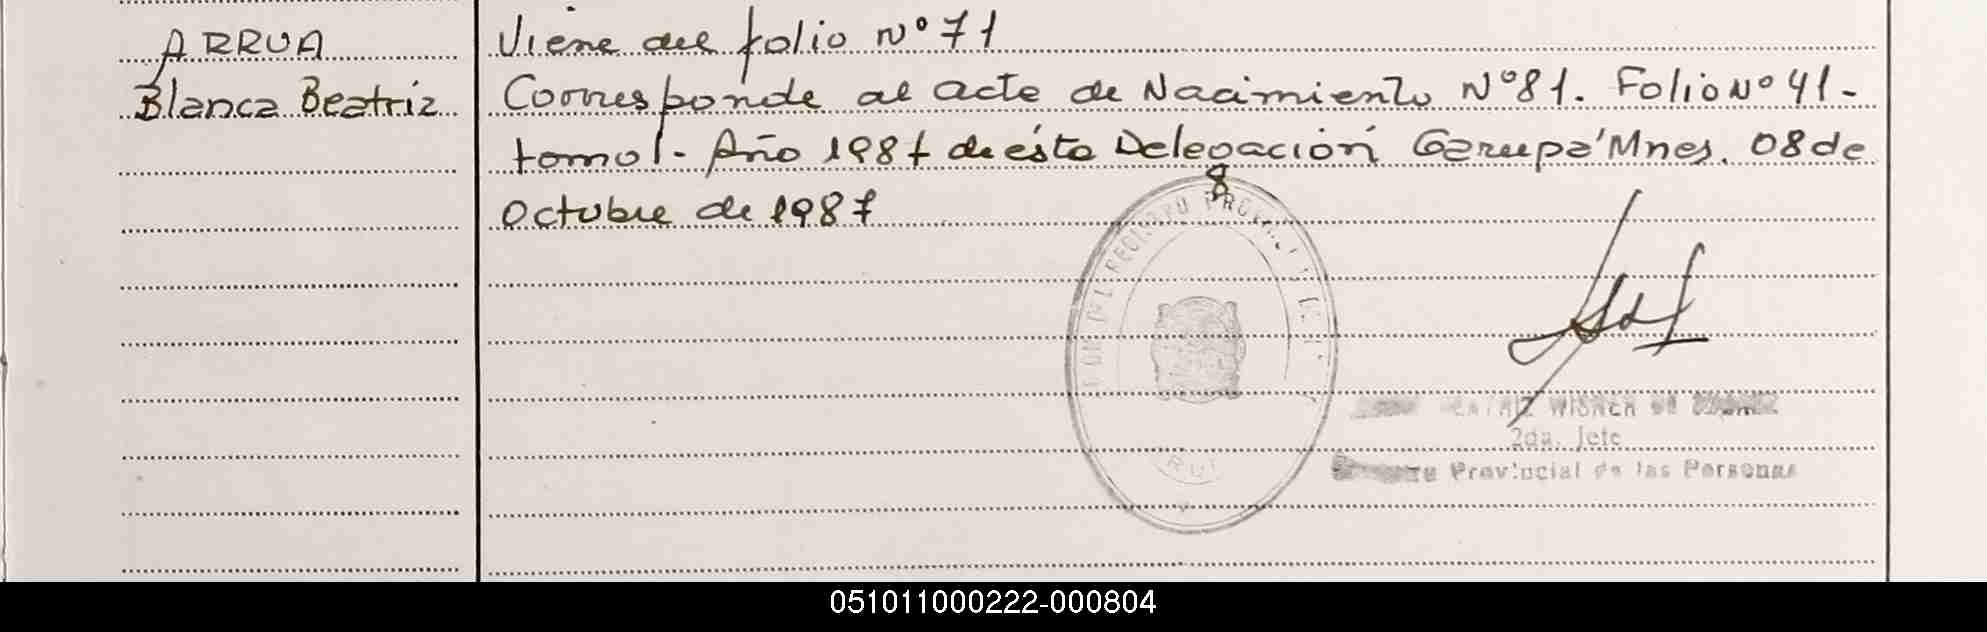 ARRUA
Blanca Beatriz
Viene del folio Nº 71
Corresponde al acta de Nacimiento Nº 81. Folio Nº 41-
tomo I - Año 1987 de ésta Delegación Garupa' Mnes. 08 de
8
Octubre de 1987
REGISTRO PROV
BEATRIZ WISNER DE
2da. Jefe
Provincial de las Personas
051011000222-000804